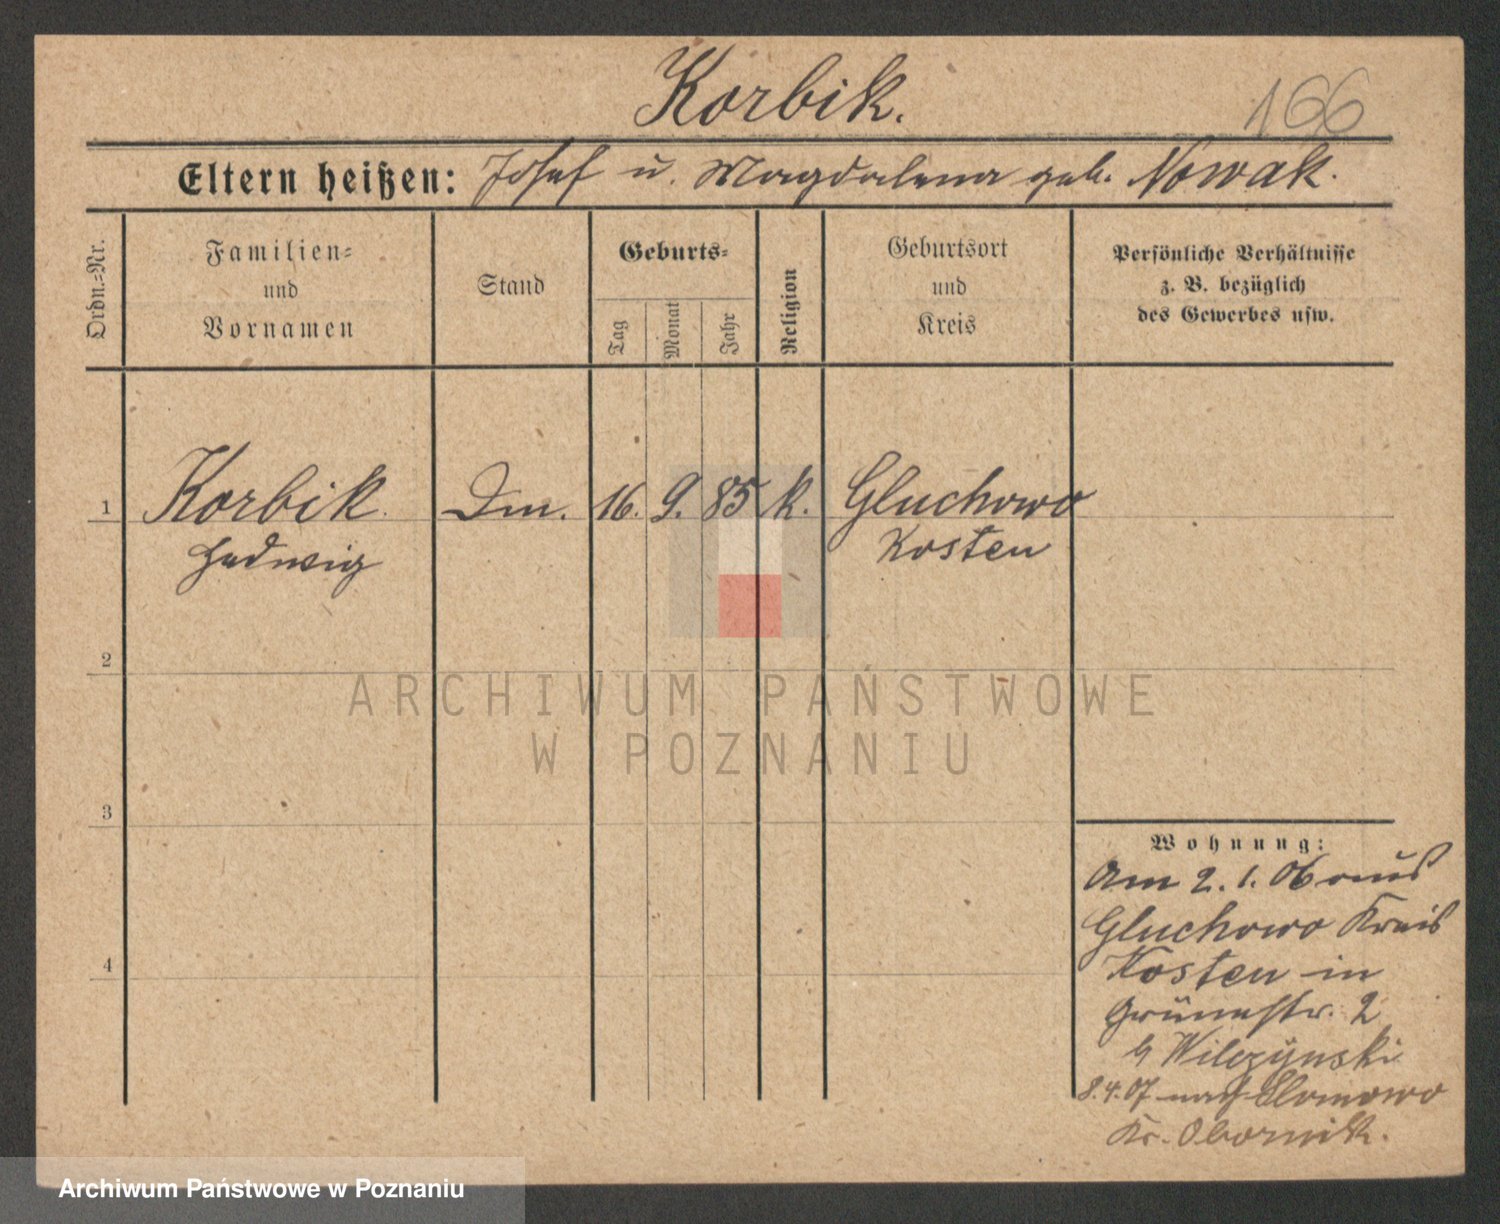 Korbik.
166
Eltern heißen: Josef u. Magdalena geb. Nowak.
Ordn.=Nr.
Familien=
und
Vornamen
Stand
Geburts=
Tag
Monat
Jahr
Religion
Geburtsort
und
Kreis
Persönliche Verhältnisse
z. B. bezüglich
des Gewerbes usw.
1 Korbik Dm. 16. 9. 85 k. Gluchowo
Hedwig Kosten
2
ARCHIWUM PAŃSTWOWE
W POZNANIU
3
Wohnung:
Am 2. 1. 06 aus
Gluchowo Kreis
4
Kosten in
Grünestr. 2
b Wilczynski
8.4.07 nach
Kr. Obornik.
Archiwum Państwowe w Poznaniu